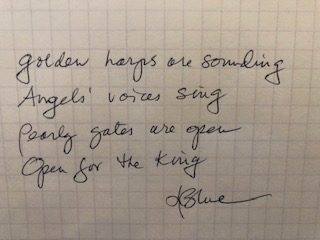 golden harps are sounding
Angels' voices sing
Pearly gates are open
Open for the King